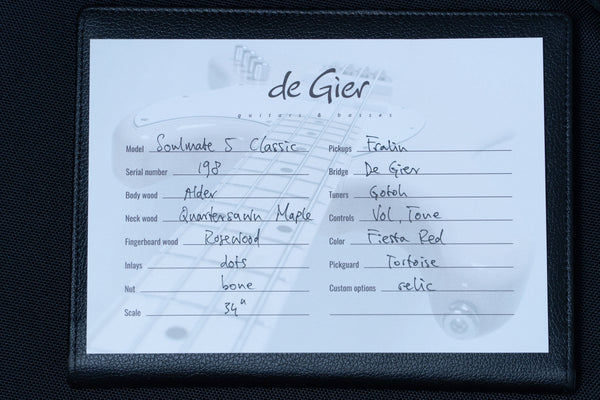 de Gier
guitars & basses
Model Soulmate 5 Classic
Serial number 198
Body wood Alder
Neck wood Quartersawn Maple
Fingerboard wood Rosewood
Inlays dots
Nut bone
Scale 34"
Pickups Fralin
Bridge De Gier
Tuners Gotoh
Controls Vol, Tone
Color Fiesta Red
Pickguard Tortoise
Custom options relic